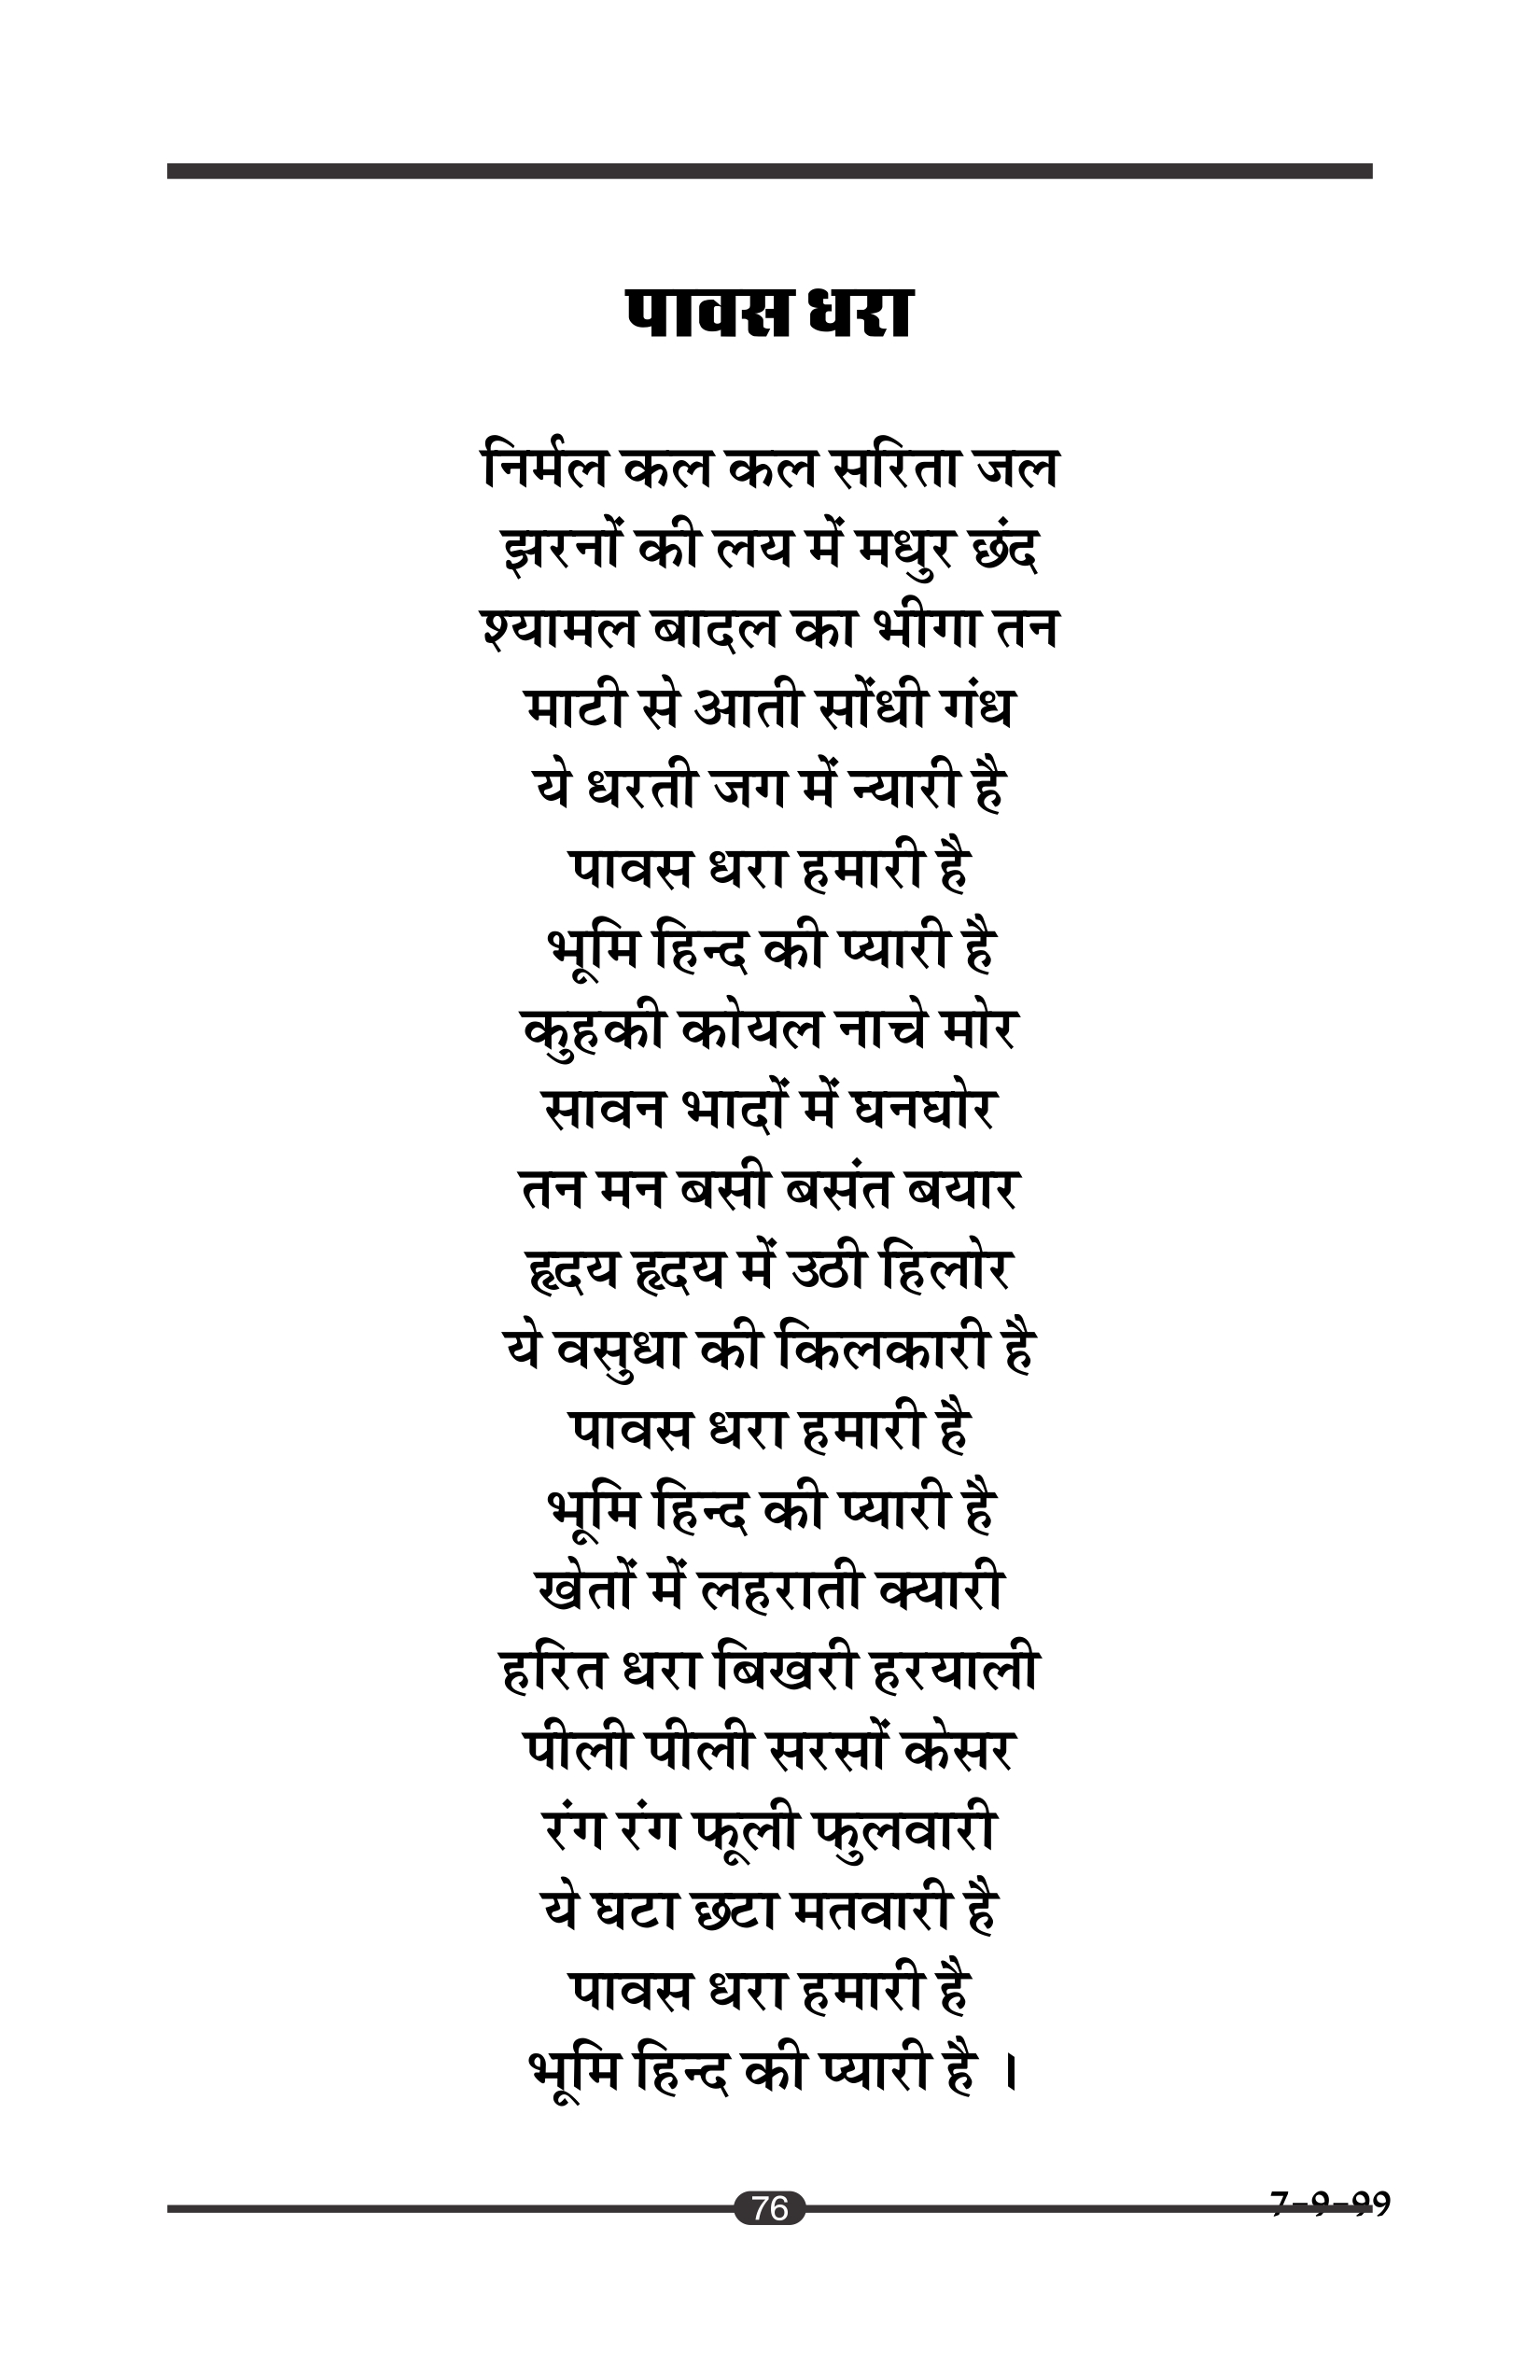 पावस धरा
निर्मल कल कल सरिता जल
झरनों की लय में मधुर छंद
श्यामल बादल का भीगा तन
माटी से आती सोंधी गंध
ये धरती जग में न्यारी है
पावस धरा हमारी है
भूमि हिन्द की प्यारी है
कुहकी कोयल नाचे मोर
सावन भादों में घनघोर
तन मन बसी बसंत बयार
हृदय हृदय में उठी हिलोर
ये वसुधा की किलकारी है
पावस धरा हमारी है
भूमि हिन्द की प्यारी है
खेतों में लहराती क्यारी
हरित धरा बिखरी हरयाली
पीली पीली सरसों केसर
रंग रंग फूली फुलवारी
ये घटा छटा मतवारी है
पावस धरा हमारी है
भूमि हिन्द की प्यारी है ।
76
7-9-99